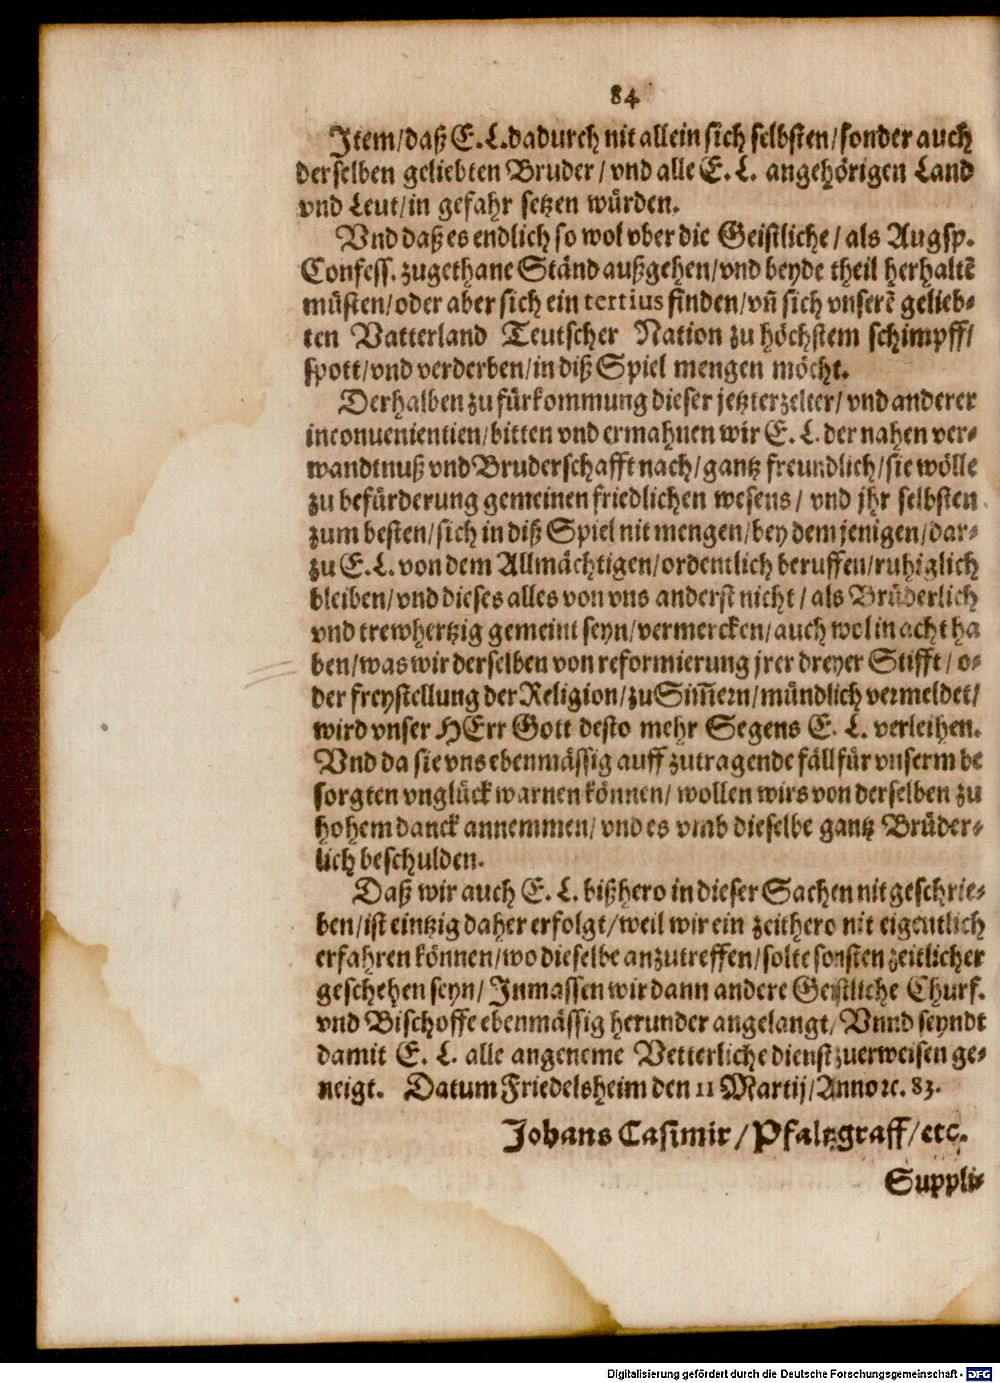 84
Item/daß E. L. dadurch nit allein sich selbsten/sonder auch
derselben geliebten Bruder/ vnd alle E. L. angehörigen Land
vnd Leut/in gefahr setzen würden.
Vnd daß es endlich so wol vber die Geistliche/ als Augsp.
Confess. zugethane Ständ außgehen/vnd beyde theil herhaltē
müsten/oder aber sich ein tertius finden/vñ sich vnserē gelieb-
ten Vatterland Teutscher Nation zu höchstem schimpff/
spott/vnd verderben/in diß Spiel mengen möcht.
Derhalben zu fürkommung dieser jetzterzelter/ vnd anderer
inconuenientien/bitten vnd ermahnen wir E. L. der nahen ver-
wandtnuß vnd Bruderschafft nach/gantz freundlich/sie wölle
zu befürderung gemeinen friedlichen wesens/ vnd jhr selbsten
zum besten/sich in diß Spiel nit mengen/bey dem jenigen/dar-
zu E. L. von dem Allmächtigen/ordentlich beruffen/ruhiglich
bleiben/vnd dieses alles von vns anderst nicht/ als Brüderlich
vnd trewhertzig gemeint seyn/vermercken/auch wol in acht ha
ben/was wir derselben von reformierung jrer dreyer Stifft/ o-
der freystellung der Religion/zu Sim̄ern/mündlich vermeldet/
wird vnser HErr Gott desto mehr Segens E. L. verleihen.
Vnd da sie vns ebenmässig auff zutragende fäll für vnserm be
sorgten vnglück warnen können/ wollen wirs von derselben zu
hohem danck annemmen/ vnd es vmb dieselbe gantz Brüder-
lich beschulden.
Daß wir auch E. L. bißhero in dieser Sachen nit geschrie-
ben/ist eintzig daher erfolgt/weil wir ein zeithero nit eigentlich
erfahren können/wo dieselbe anzutreffen/solte sonsten zeitlicher
geschehen seyn/ Inmassen wir dann andere Geistliche Churf.
vnd Bischoffe ebenmässig herunder angelangt/ Vnnd seyndt
damit E. L. alle angeneme Vetterliche dienst zuerweisen ge-
neigt. Datum Friedelsheim den 11 Martij/Anno ꝛc. 83.
Johans Casimir/Pfaltzgraff/etc.
Suppli-
Digitalisierung gefördert durch die Deutsche Forschungsgemeinschaft - DFG